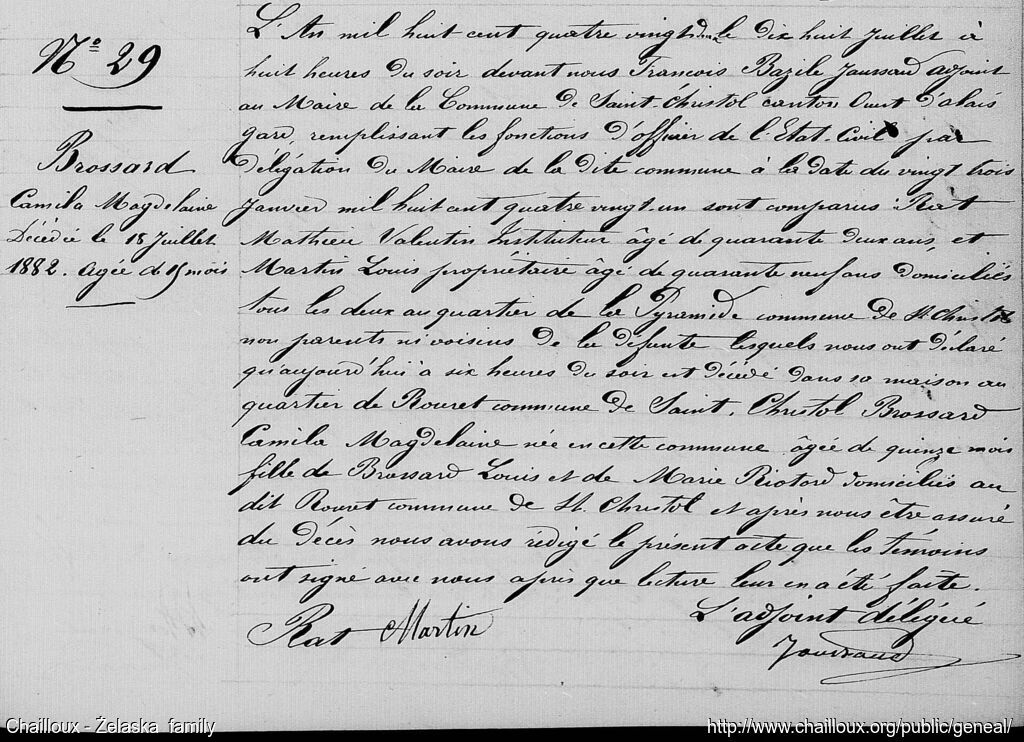 N° 29
Brossard
Camila Magdelaine
Décédée le 18 Juillet
1882. agée de 15 mois
L'An mil huit cent quatre vingt deux le dix huit Juillet à
huit heures du soir devant nous François Bazile Jaussaud adjoint
au Maire de la Commune de Saint-Christol canton Ouest d'alais
gard, remplissant les fonctions d'officier de l'Etat-Civil par
délégation du Maire de la dite commune à la date du vingt trois
Janvier mil huit cent quatre vingt-un sont comparus : Rat
Mathieu Valentin Instituteur âgé de quarante deux ans, et
Martin Louis propriétaire âgé de quarante neuf ans domiciliés
tous les deux au quartier de la Pyramide commune de St Christol
non parents ni voisins de la défunte lesquels nous ont déclaré
qu'aujourd'hui à six heures du soir est décédé dans sa maison au
quartier de Rouret commune de Saint-Christol Brossard
Camila Magdelaine née en cette commune âgée de quinze mois
fille de Brossard Louis et de Marie Riotord domiciliés au
dit Rouret commune de St. Christol et après nous être assuré
du décès nous avons rédigé le présent acte que les témoins
ont signé avec nous après que lecture leur en a été faite.
L'adjoint délégué
Rat Martin
Jaussaud
Chailloux - Żelaska family
http://www.chailloux.org/public/geneal/